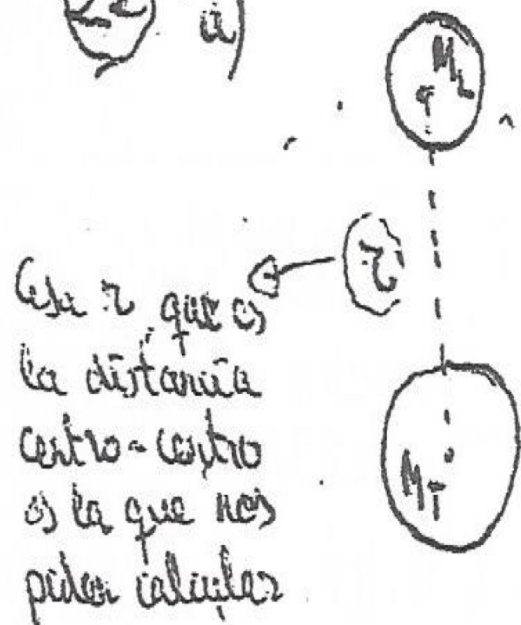 22 a)
M_L
r
Esa r que es
la distancia
centro-centro
es la que nos
piden calcular
M_T